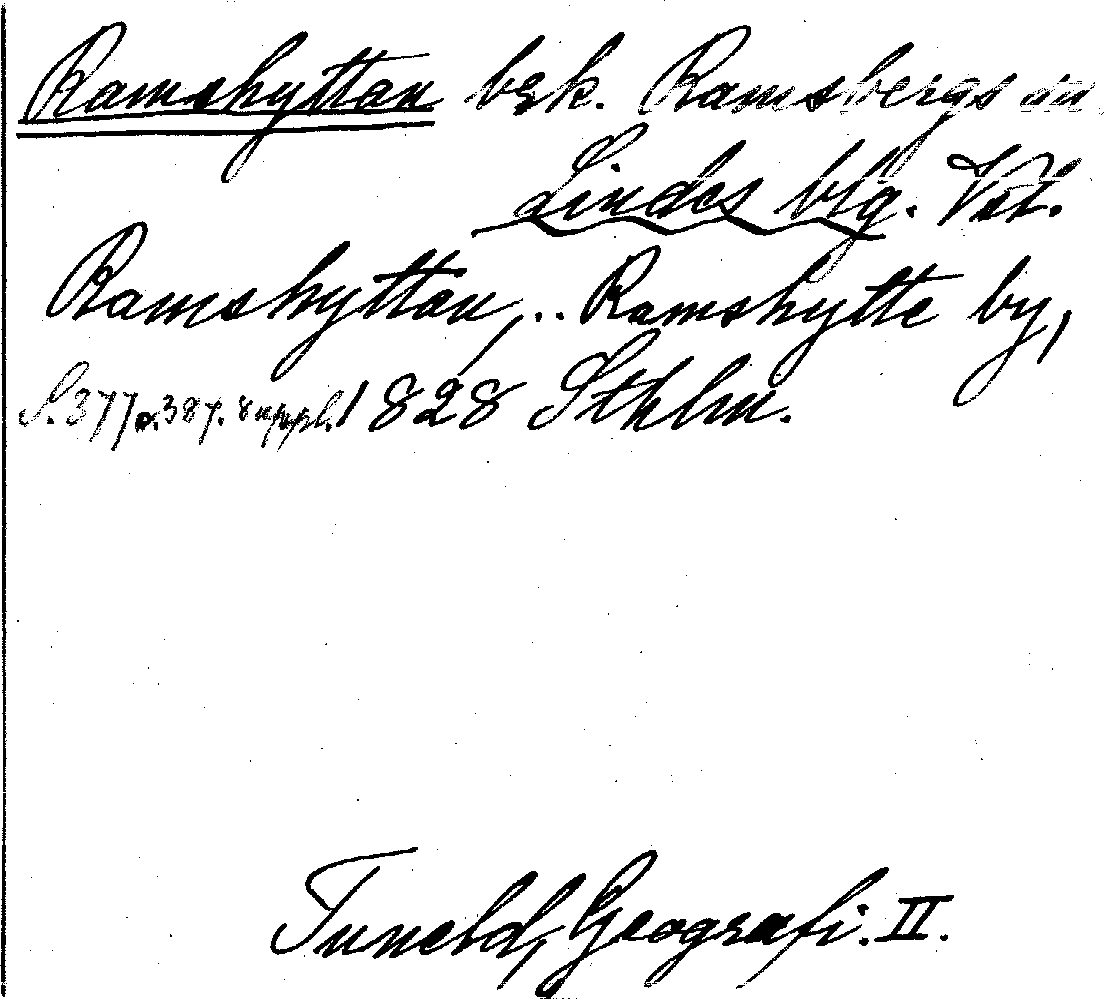 Ramshyttan bsk. Ramsbergs sn
Lindes blg. Vstl.
Ramshyttan, .. Ramshytte by,
S. 377 o. 387. suppl. 1828 Sthlm.
Tuneld, Geografi. II.